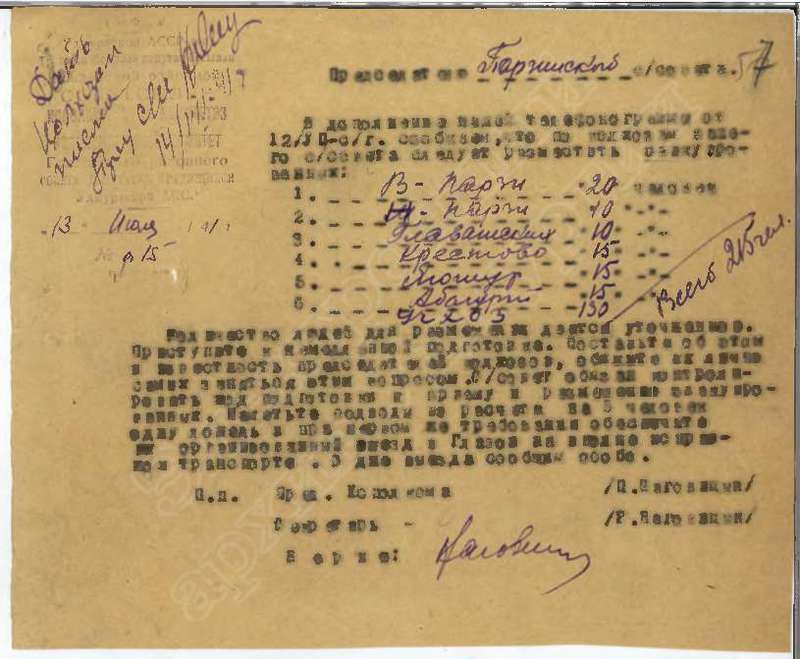 Дать
колхозам
14/VII-41 г
АССР
13 Июля 41 г
№ 915
Председателю Паржинский с/совета.
57
В дополнение нашей телефонограммы от
12/УП-с/г. сообщаем, что по колхозам ваше-
го с/совета следует разместить эвакуиро-
ванных:
1. В - Парзи 20 человек
2. Н - Парзи 10 -"-
3. Главатских 10 -"-
4. Крестово 15 -"-
5. 15 -"-
6. Абагурт 15 -"-
130
Всего 215 чел.
Количество людей для размещения дается уточненное.
Приступите к немедленной подготовке. Поставьте об этом
в известность председателей колхозов, обяжите их лично
самих заняться этим вопросом. С/совет обязан контроли-
ровать ход подготовки к приему и размещению эвакуиро-
ванных. Наметьте подводы из расчета на 5 человек
одну лошадь и при первом же требовании обеспечьте
организованный выезд в Глазов на вполне исправ-
ном транспорте. О дне выезда сообщим особо.
П.п. Пред. Исполкома /П.Наговицын/
Секретарь - /Р.Наговицын/
Верно: Наговицын